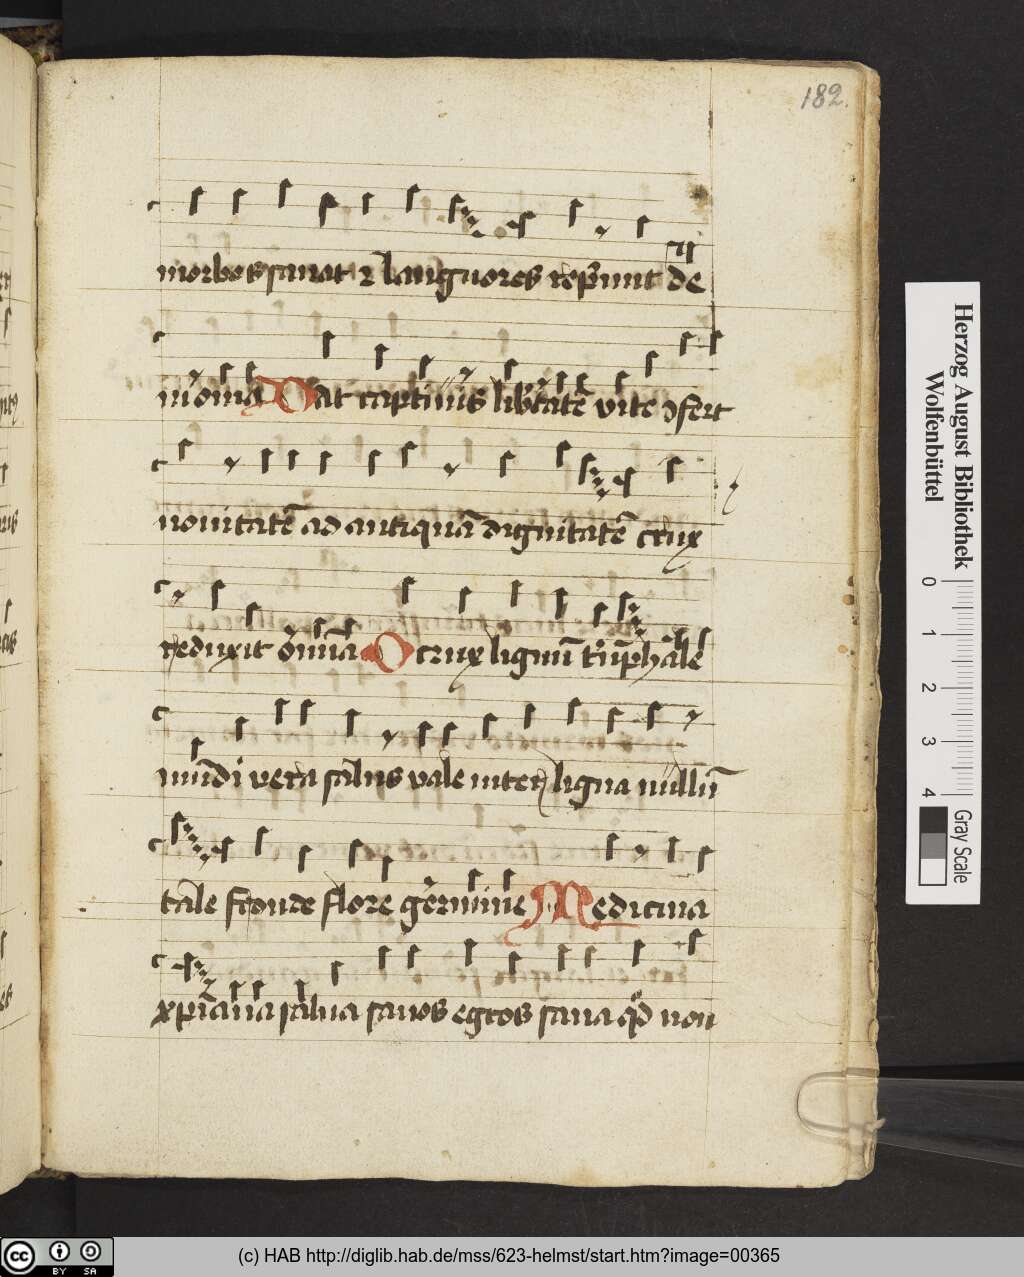 182.
morbos sanat ⁊ languores rep̄mit de
monia Dat captiuis lib̄tatē vite ꝯfert
nouitatē ad antiquā dignitatē crux
reduxit oīnia O crux lignū tͥūphale
mūdi vera salus vale inter ligna nullū
tale fronde flore germine Medicina
xp̄iana salua sanos egros sana qd̄ non
Herzog August Bibliothek
Wolfenbüttel
0 1 2 3 4
Gray Scale
cc BY SA
(c) HAB http://diglib.hab.de/mss/623-helmst/start.htm?image=00365